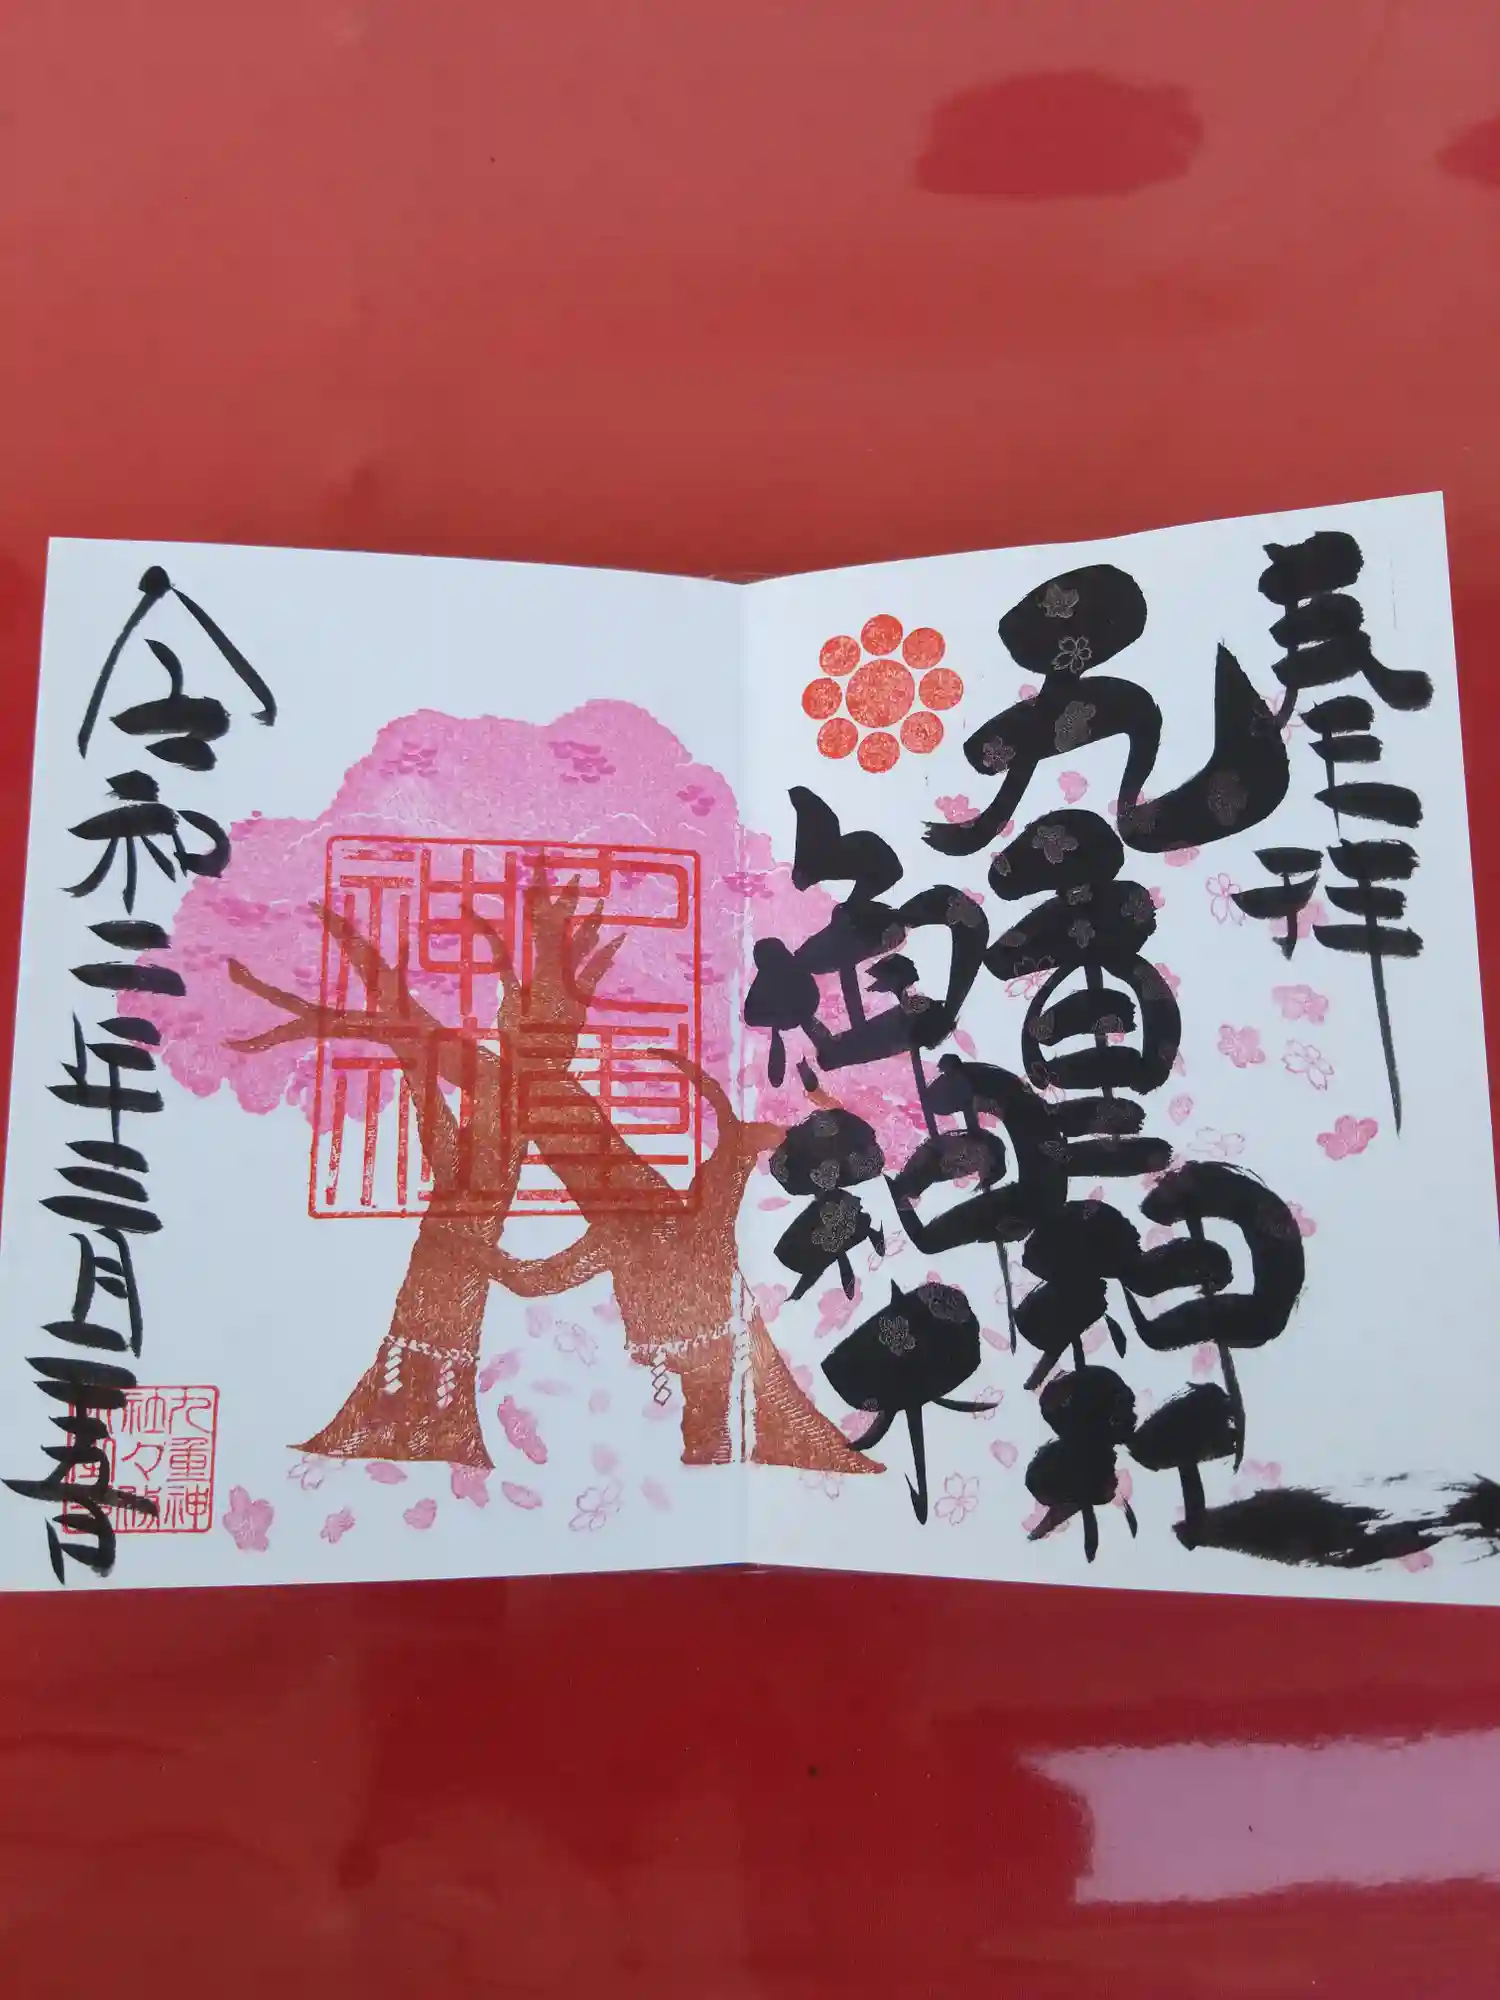 奉拝
九重神社
御神木
九重神社
令和二年三月
九重神
社々務